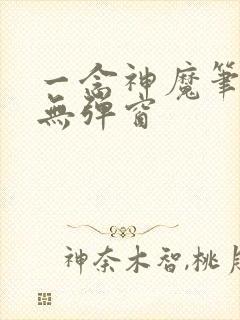 一念神魔筆
無彈窗
神奈木智,桃月